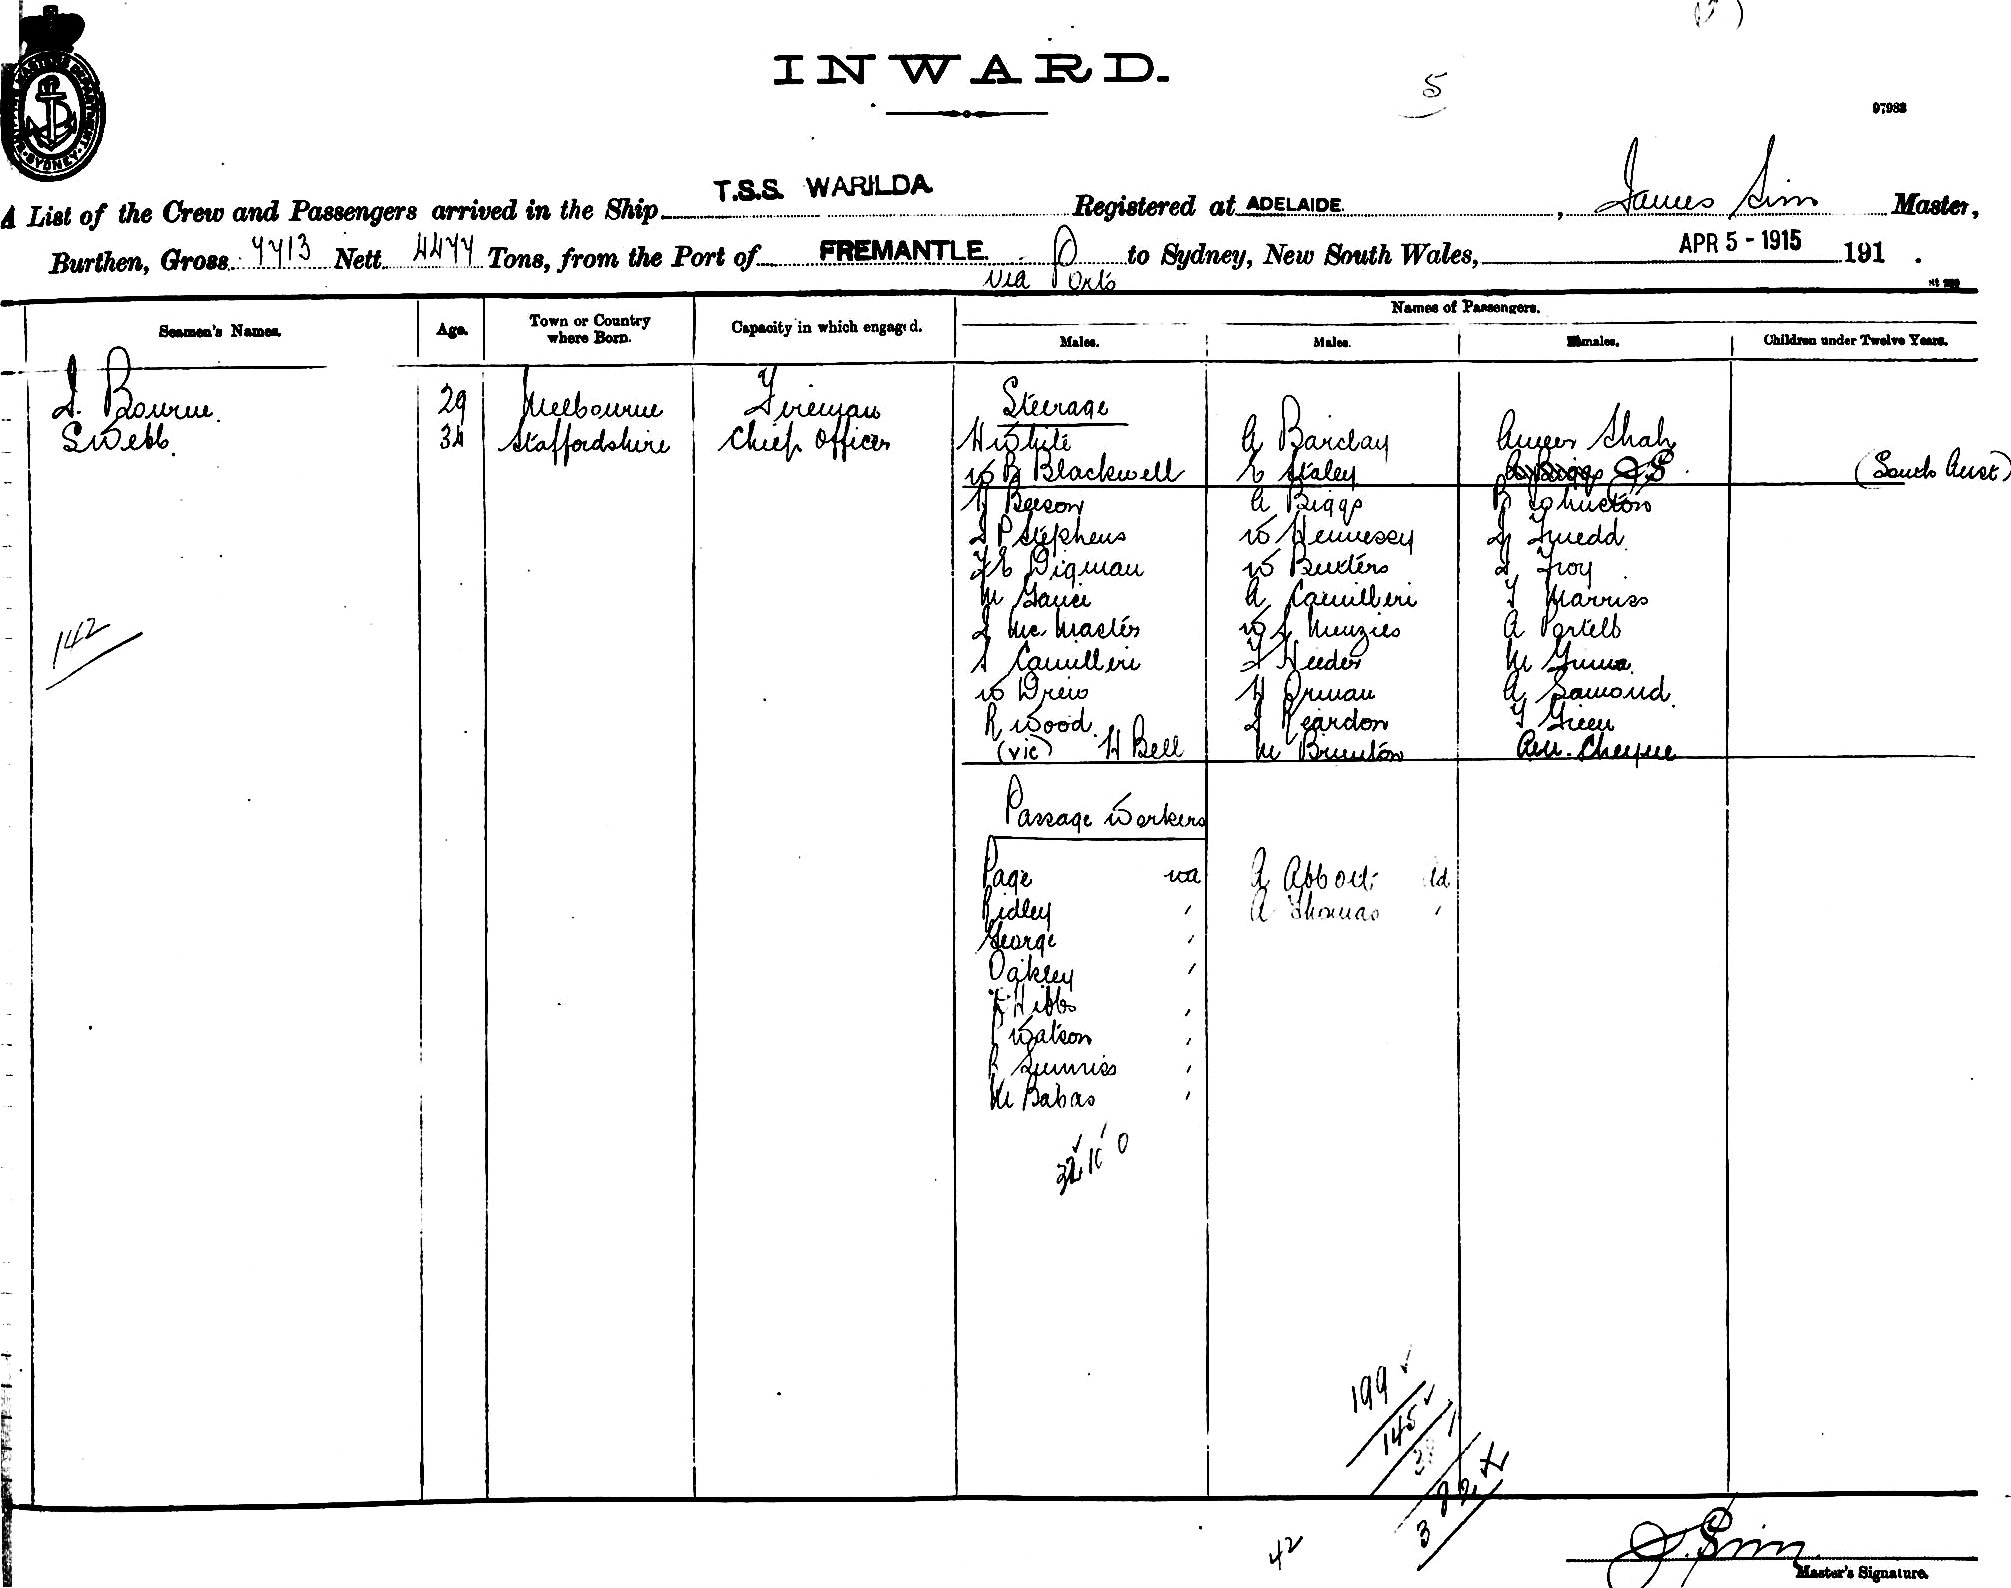 INWARD.
5
97983
A List of the Crew and Passengers arrived in the Ship T.S.S. WARILDA Registered at ADELAIDE. , James Sim Master,
Burthen, Gross 7713 Nett 4477 Tons, from the Port of FREMANTLE. via Ports to Sydney, New South Wales, APR 5 - 1915 191 .
Seamen's Names. Age. Town or Country where Born. Capacity in which engaged. Names of Passengers.
Males. Males. Females. Children under Twelve Years.
J. Bourne. 29 Melbourne Fireman Steerage
S Webb. 34 Staffordshire Chief Officer H White A Barclay Ameer Shah
W R Blackwell E Staley (South Aust)
H Beeson A Biggs R Johnston
J P Stephens W Hennessy J Tuedd
F E Digman W Buxters J Troy
M Gauci A Camilleri T Marriss
J Mc Master W S Menzies A Portelli
S Camilleri F Heeder M Gunna
W Drew H Orman A Samond.
R Wood. J Reardon T Green
(vic) H Bell M Brunton
Passage Workers
Page wa A Abbott
Ridley " A Thomas "
George "
Oakley "
F Hibbs "
Watson "
R Sumriss "
M Babas "
142
32 10 0
199
145
38
382
42
J. Sim
Master's Signature.